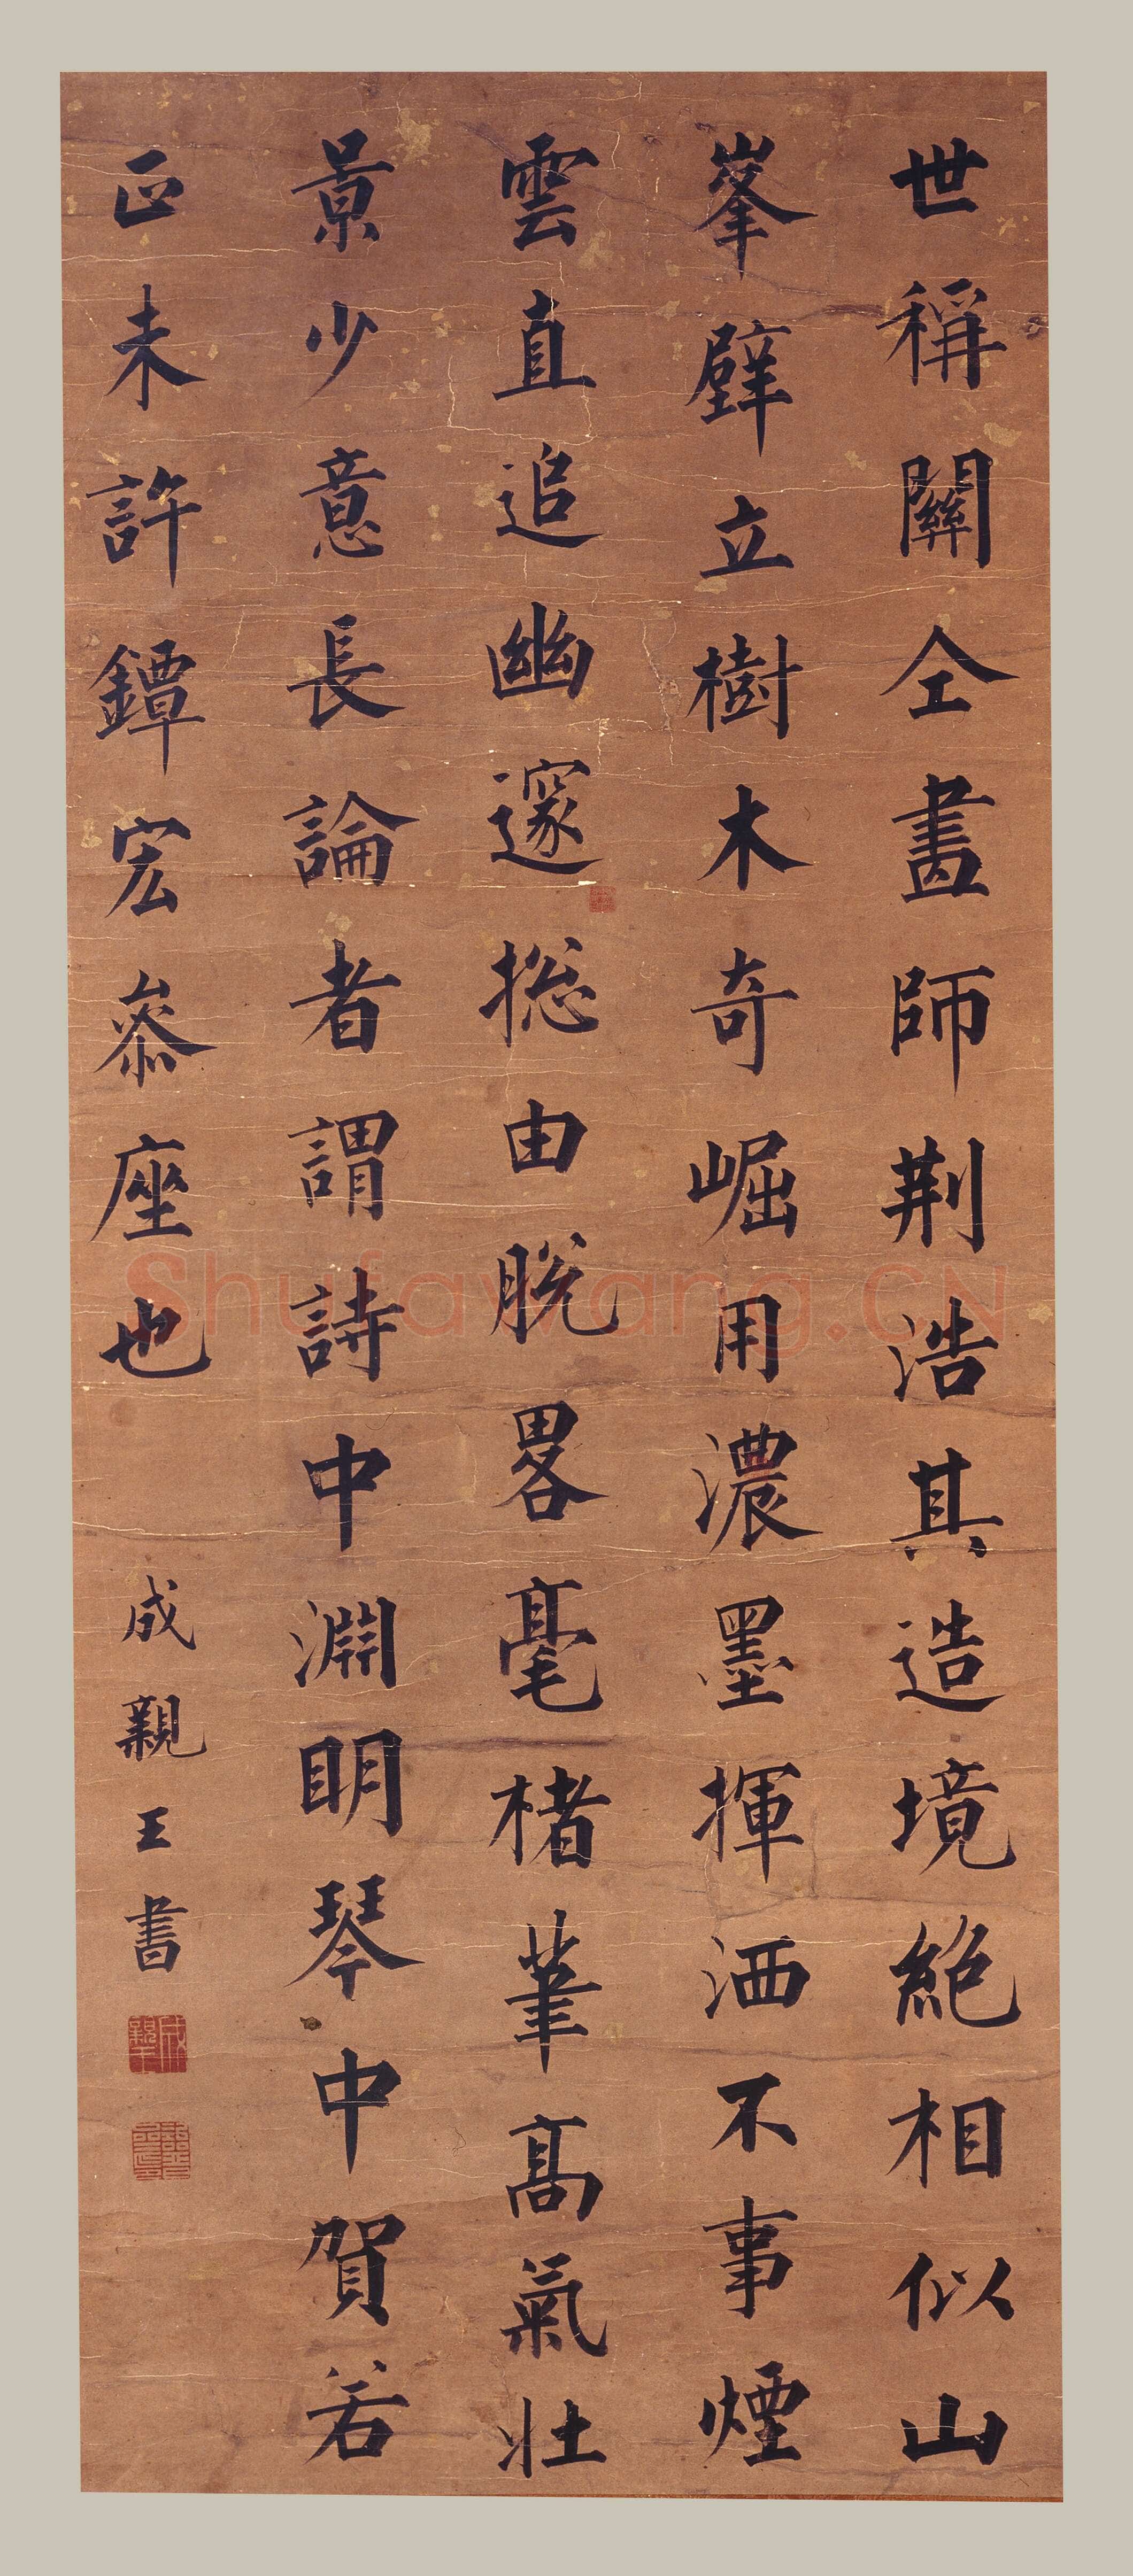 世稱關仝畵師荆浩其造境絕相似山
峯壁立樹木奇崛用濃墨揮洒不事煙
雲直追幽邃捴由脱畧毫楮筆高氣壯
景少意長論者謂詩中淵明琴中賀若
正未許鐔宏叅座也
成親王書
Shufawang.CN